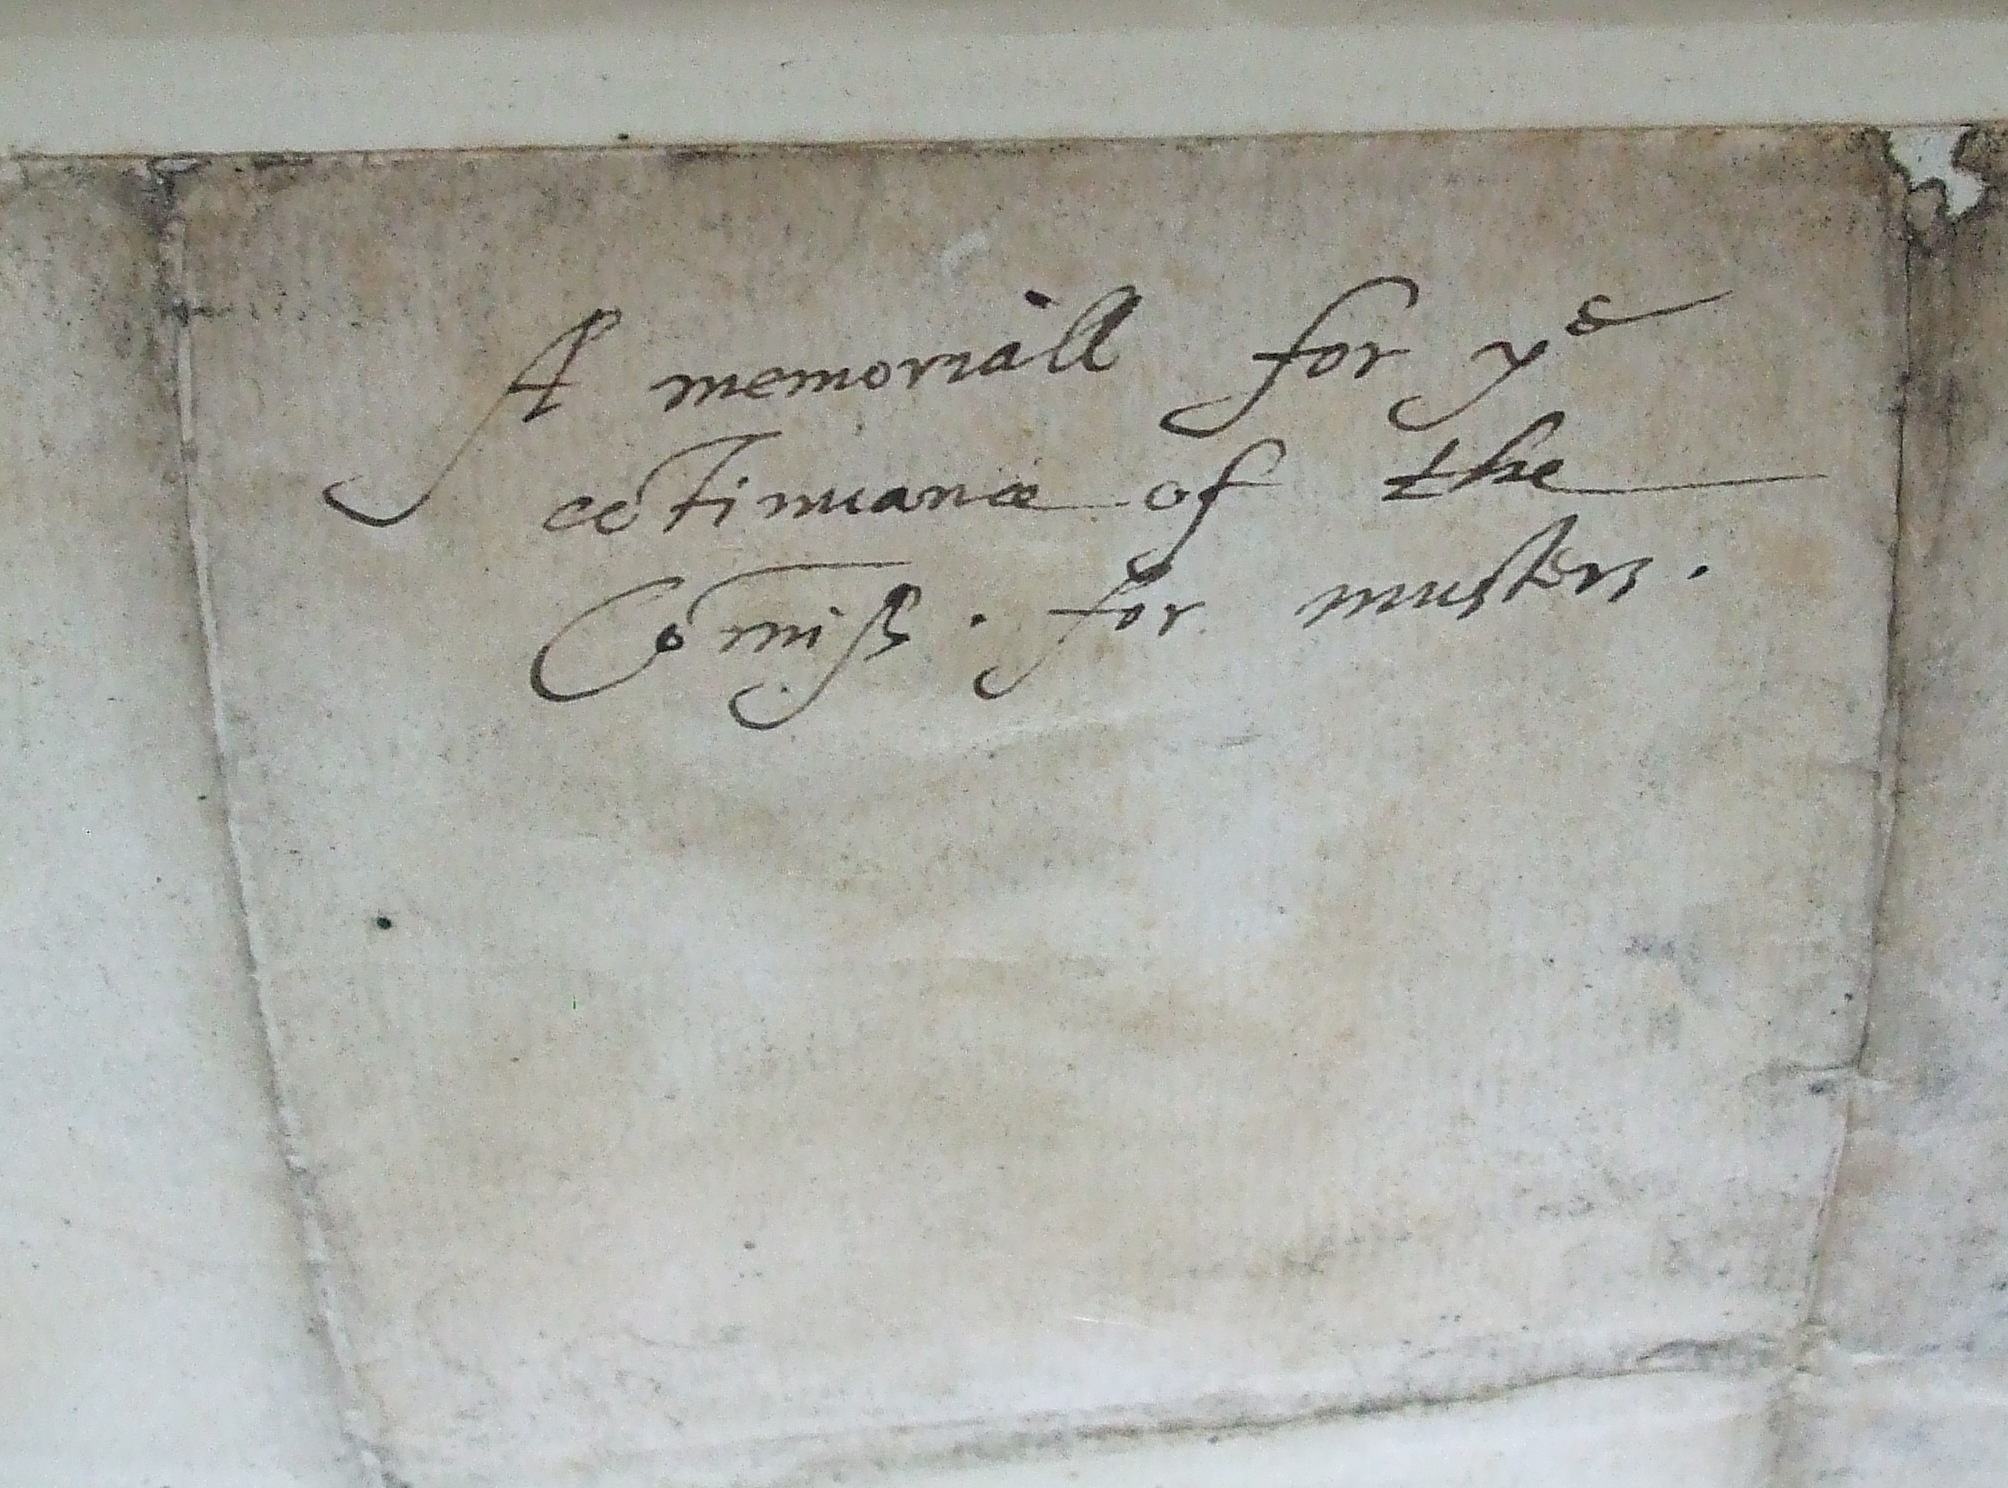 A memoriall for yᵉ
cōtinuance of the
Cōmiß. for musters.